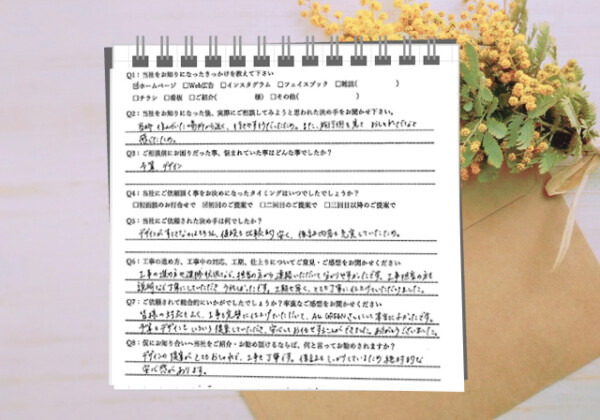 Q1：当社をお知りになったきっかけを教えて下さい
☑ホームページ □Web広告 □インスタグラム □フェイスブック □雑誌( )
□チラシ □看板 □ご紹介( 様) □その他( )
Q2：当社をお知りになった後、実際にご相談してみようと思われた決め手をお聞かせ下さい。
感じたため。
Q3：ご相談前にお困りだった事、悩まれていた事はどんな事でしたか？
予算、デザイン
Q4：当社にご依頼頂く事をお決めになったタイミングはいつでしたでしょうか？
□初面談のお打合せで ☑初回のご提案で □二回目のご提案で □三回目以降のご提案で
Q5：当社にご依頼された決め手は何でしたか？
デザインがすてきなのはもちろん、値段も比較的安く、保証内容も充実していたため。
Q6：工事の進め方、工事中の対応、工期、仕上りについてご意見・ご感想をお聞かせください
工事の進め方や進捗状況など、担当の方から連絡いただいて分かりやすかったです。工事担当の方も
説明など丁寧にしていただき、うれしかったです。工期も早く、とても丁寧に仕上げていただけました。
Q7：ご依頼されて総合的にいかがでしたでしょうか？率直なご感想をお聞かせください
皆様の対応もよく、工事も完璧に仕上げていただいて、さんにして本当によかったです。
予算もデザインもいろいろ提案していただき、安心してお任せすることができました。ありがとうございました。
Q8：仮にお知り合いへ当社をご紹介・お勧め頂けるならば、何と言ってお勧めされますか？
デザインの提案がとてもおしゃれで、工事も丁寧です。保証もしっかりしているため絶対的な
安心感があります。